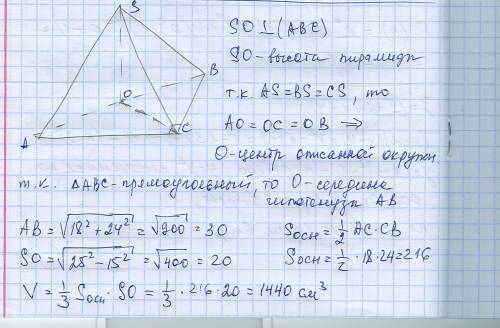 S
B
O
C
A
SO⊥(ABC)
SO-высота пирамиды
т.к AS=BS=CS, то
AO=OC=OB ⇒
O-центр описанной окружн.
т.к. ΔABC-прямоугольный, то O-середина
гипотенузы AB
AB = √18² + 24² = √900 = 30
Sосн = 1/2 AC·CB
SO = √25² - 15² = √400 = 20
Sосн = 1/2 · 18·24 = 216
V = 1/3 Sосн · SO = 1/3 · 216 · 20 = 1440 см³